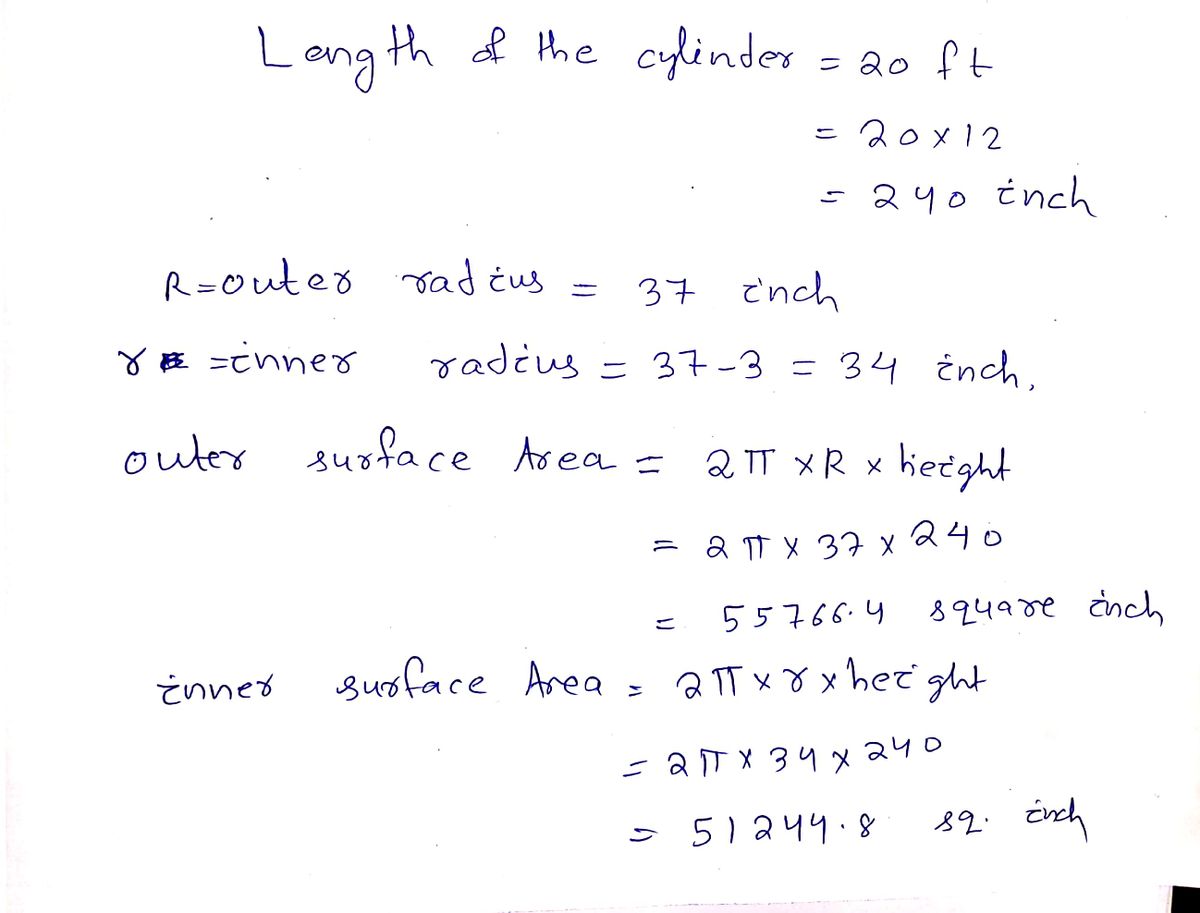 Length of the cylinder = 20 ft
= 20 x 12
= 240 inch
R = outer radius = 37 inch
r = inner radius = 37 - 3 = 34 inch,
outer surface Area = 2π x R x height
= 2π x 37 x 240
= 55766.4 square inch
inner surface Area = 2π x r x height
= 2π x 34 x 240
= 51244.8 sq. inch